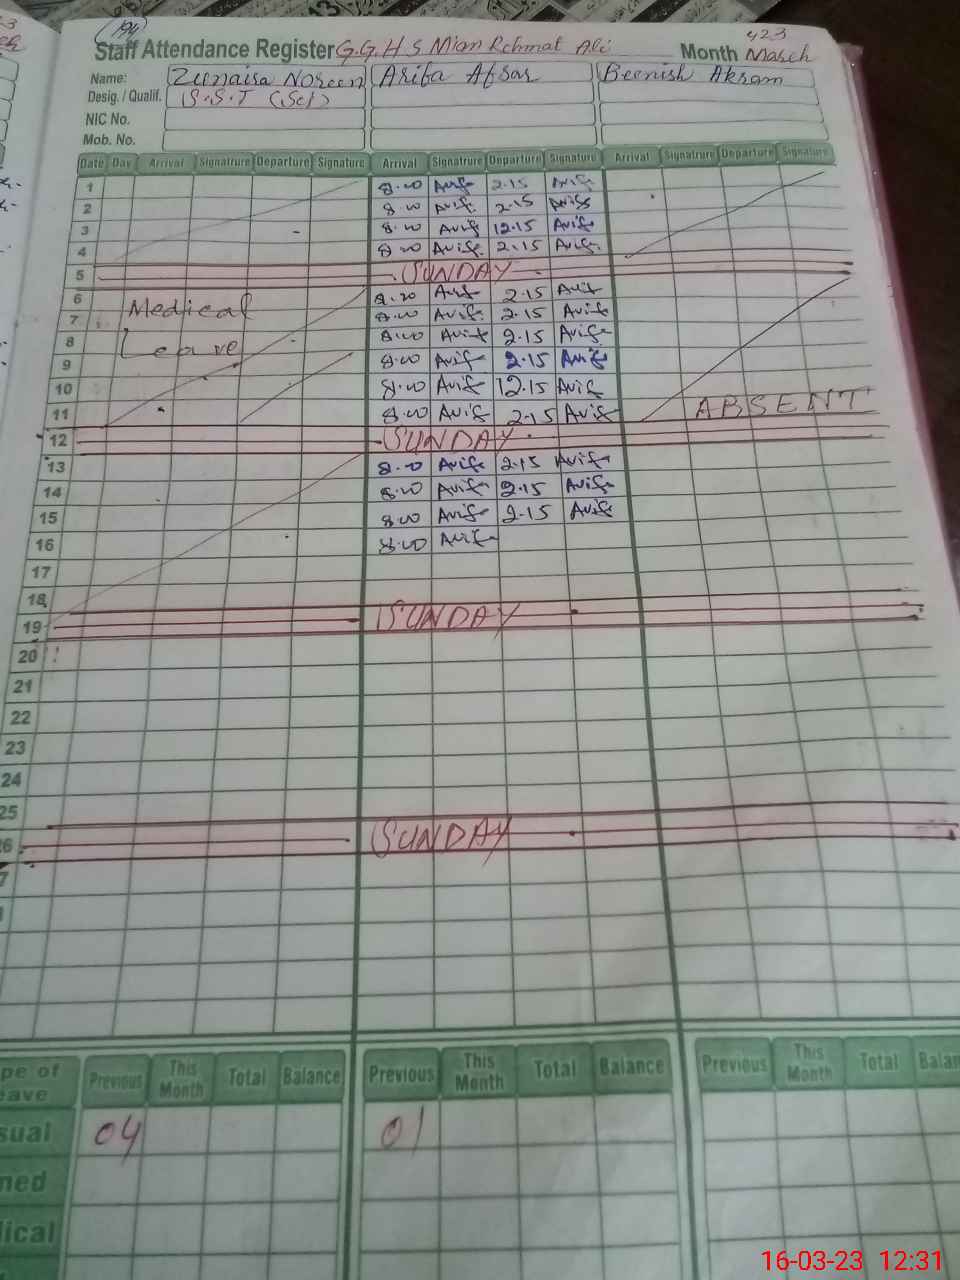 194
Staff Attendance Register G.G.H.S Mian Rehmat Ali Month March
Name: Zunaisa Noreen Arifa Afsar Beenish Akram
Desig. / Qualif. S.S.T (Sci)
NIC No.
Mob. No.
Date Day Arrival Signatrure Departure Signature Arrival Signatrure Departure Signature Arrival Signatrure Departure Signature
1 8.00 Arifa 2.15 Arifa
2 8.00 Arifa 2.15 Arifa
3 8.00 Arifa 12.15 Arifa
4 8.00 Arifa 2.15 Arifa
5 SUNDAY
6 8.00 Arifa 2.15 Arifa
7 Medical 8.00 Arifa 2.15 Arifa
8 Leave 8.00 Arifa 2.15 Arifa
9 8.00 Arifa 2.15 Arifa
10 8.00 Arifa 12.15 Arifa
11 8.00 Arifa 2.15 Arifa ABSENT
12 SUNDAY
13 8.00 Arifa 2.15 Arifa
14 8.00 Arifa 2.15 Arifa
15 8.00 Arifa 2.15 Arifa
16 8.00 Arifa
17
18
19 SUNDAY
20
21
22
23
24
25
6 SUNDAY
7
pe of eave Previous This Month Total Balance Previous This Month Total Balance Previous This Month Total Balan
sual 04 01
ned
lical
16-03-23 12:31